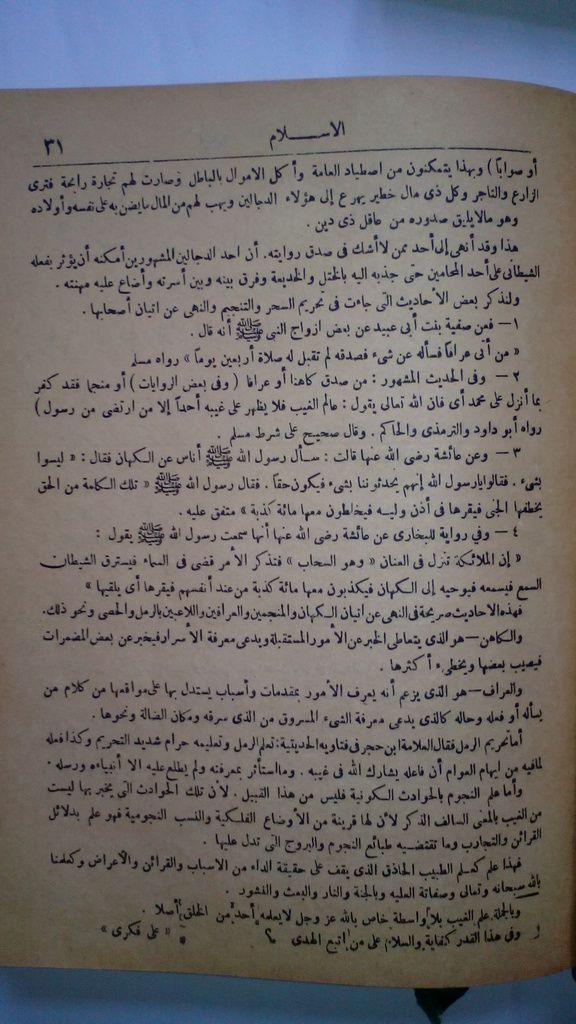 الاسـلام ٣١
أو صوابا ) وبهذا يتمكنون من اصطياد العامة وأكل الاموال بالباطل وصارت لهم تجارة رابحة فترى
الزارع والتاجر وكل ذى مال خطير يهرع إلى هؤلاء الدجالين ويهب لهم من المال مايضن به على نفسه وأولاده
وهو مالايليق صدوره من عاقل ذى دين .
هذا وقد أنهى إلى أحد ممن لا أشك فى صدق روايته. أن احد الدجالين المشهورين أمكنه أن يؤثر بفعله
الشيطانى على أحد المحامين حتى جذبه اليه بالختل والخديعة وفرق بينه وبين أسرته وأضاع عليه مهنته .
ولنذكر بعض الأحاديث التى جاءت فى تحريم السحر والتنجيم والنهى عن اتيان أصحابها .
١ — فعن صفية بنت أبى عبيد عن بعض ازواج النبى ﷺ أنه قال .
« من أتى عرافا فسأله عن شىء فصدقه لم تقبل له صلاة أربعين يوما » رواه مسلم
٢ — وفى الحديث المشهور : من صدق كاهنا أو عرافا ( وفى بعض الروايات ) أو منجما فقد كفر
بما أنزل على محمد أى فان الله تعالى يقول : عالم الغيب فلا يظهر على غيبه أحداً إلا من ارتضى من رسول )
رواه أبو داود والترمذى والحاكم . وقال صحيح على شرط مسلم .
٣ — وعن عائشة رضى الله عنها قالت : سأل رسول الله ﷺ أناس عن الكهان فقال : « ليسوا
بشىء . فقالوا يارسول الله إنهم يحدثوننا بشىء فيكون حقا . فقال رسول الله ﷺ « تلك الكلمة من الحق
يخطفها الجنى فيقرها فى أذن وليه فيخلطون معها مائة كذبة » متفق عليه .
٤ — وفي رواية للبخارى عن عائشة رضى الله عنها أنها سمعت رسول الله ﷺ يقول :
« إن الملائكة تنزل فى العنان « وهو السحاب » فتذكر الأمر قضى فى السماء فيسترق الشيطان
السمع فيسمعه فيوحيه إلى الكهان فيكذبون معها مائة كذبة من عند أنفسهم فيقرها أى يلقيها »
فهذه الاحاديث صريحة فى النهى عن اتيان الكهان والمنجمين والعرافين واللاعبين بالرمل والحصى ونحو ذلك.
والكاهن — هو الذى يتعاطى الخبر عن الأمور المستقبلة ويدعى معرفة الأسرار فيخبر عن بعض المضمرات
فيصيب بعضها ويخطىء أكثرها .
والعراف — هو الذى يزعم أنه يعرف الأمور بمقدمات وأسباب يستدل بها على مواقعها من كلام من
يسأله أو فعله وحاله كالذى يدعى معرفة الشىء المسروق من الذى سرقه ومكان الضالة ونحوها .
أما تحريم الرمل فقال العلامة ابن حجر فى فتاويه الحديثية : تعلم الرمل وتعليمه حرام شديد التحريم وكذا فعله
لمافيه من ايهام العوام أن فاعله يشارك الله فى غيبه . وما استأثر بمعرفته ولم يطلع عليه الا أنبياءه ورسله .
وأما علم النجوم بالحوادث الكونية فليس من هذا القبيل . لأن تلك الحوادث التى يخبر بها ليست
من الغيب بالمعنى السالف الذكر لأن لها قرينة من الأوضاع الفلكية والنسب النجومية فهو علم بدلائل
القرائن والتجارب وما تقتضيه طبائع النجوم والبروج التى تدل عليها .
فهذا علم كعلم الطبيب الحاذق الذى يقف على حقيقة الداء من الاسباب والقرائن والأعراض وكعلمنا
بالله سبحانه وتعالى وصفاته العليه وبالجنة والنار والبعث والنشور .
وبالجملة علم الغيب بلا واسطة خاص بالله عز وجل لايعلمه أحد من الخلق أصلا .
وفى هذا القدر كفاية والسلام على من اتبع الهدى « على فكرى »